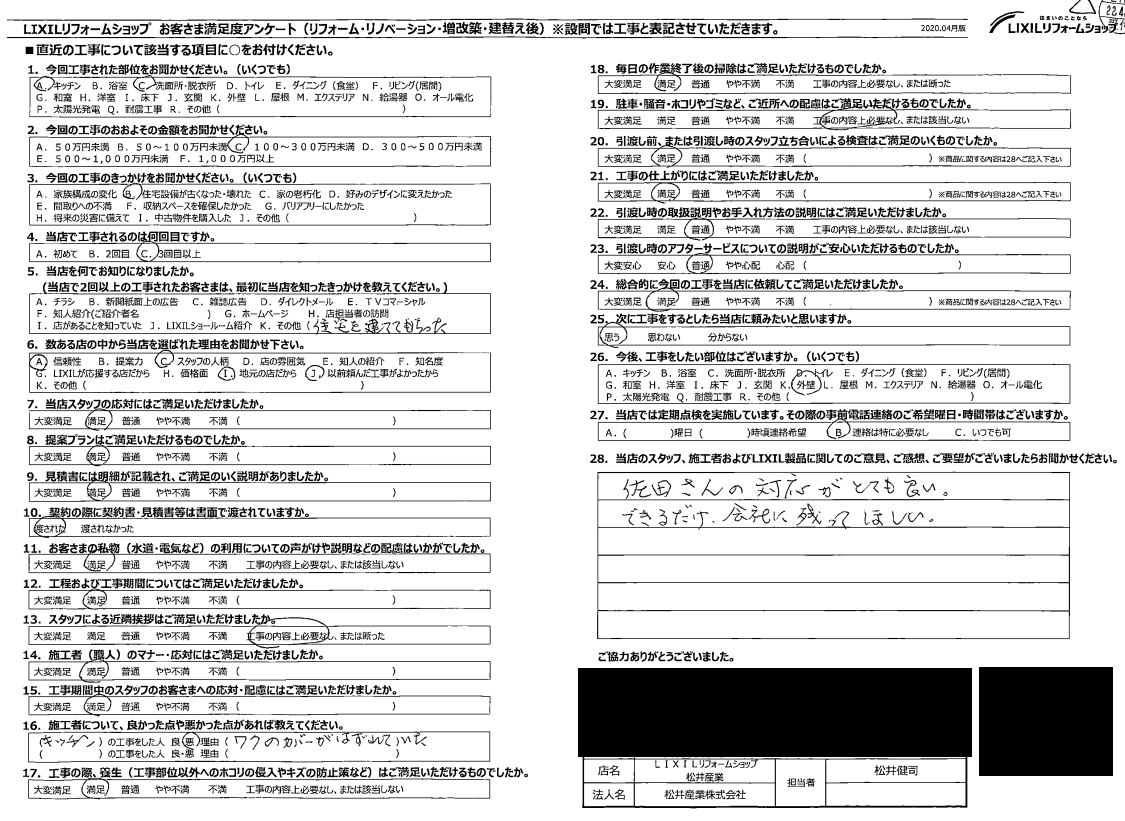 LIXILリフォームショップ お客さま満足度アンケート（リフォーム・リノベーション・増改築・建替え後）※設問では工事と表記させていただきます。
2020.04月版
住まいのことなら
LIXILリフォームショップ
22.4
■直近の工事について該当する項目に○をお付けください。
1．今回工事された部位をお聞かせください。（いくつでも）
A．キッチン B．浴室 C．洗面所・脱衣所 D．トイレ E．ダイニング（食堂） F．リビング(居間)
G．和室 H．洋室 I．床下 J．玄関 K．外壁 L．屋根 M．エクステリア N．給湯器 O．オール電化
P．太陽光発電 Q．耐震工事 R．その他（ ）
2．今回の工事のおおよその金額をお聞かせください。
A．５０万円未満 B．５０～１００万円未満 C．１００～３００万円未満 D．３００～５００万円未満
E．５００～1,０００万円未満 F．1,０００万円以上
3．今回の工事のきっかけをお聞かせください。（いくつでも）
A．家族構成の変化 B．住宅設備が古くなった・壊れた C．家の老朽化 D．好みのデザインに変えたかった
E．間取りへの不満 F．収納スペースを確保したかった G．バリアフリーにしたかった
H．将来の災害に備えて I．中古物件を購入した J．その他（ ）
4．当店で工事されるのは何回目ですか。
A．初めて B．2回目 C．3回目以上
5．当店を何でお知りになりましたか。
（当店で2回以上の工事されたお客さまは、最初に当店を知ったきっかけを教えてください。）
A．チラシ B．新聞紙面上の広告 C．雑誌広告 D．ダイレクトメール E．ＴＶコマーシャル
F．知人紹介(ご紹介者名 ) G．ホームページ H．店担当者の訪問
I．店があることを知っていた J．LIXILショールーム紹介 K．その他（ 住宅を建ててもらった
6．数ある店の中から当店を選ばれた理由をお聞かせ下さい。
A．信頼性 B．提案力 C．スタッフの人柄 D．店の雰囲気 E．知人の紹介 F．知名度
G．LIXILが応援する店だから H．価格面 I．地元の店だから J．以前頼んだ工事がよかったから
K．その他（ ）
7．当店スタッフの応対にはご満足いただけましたか。
大変満足 満足 普通 やや不満 不満（ ）
8．提案プランはご満足いただけるものでしたか。
大変満足 満足 普通 やや不満 不満（ ）
9．見積書には明細が記載され、ご満足のいく説明がありましたか。
大変満足 満足 普通 やや不満 不満（ ）
10．契約の際に契約書・見積書等は書面で渡されていますか。
渡された 渡されなかった
11．お客さまの私物（水道・電気など）の利用についての声がけや説明などの配慮はいかがでしたか。
大変満足 満足 普通 やや不満 不満 工事の内容上必要なし、または該当しない
12．工程および工事期間についてはご満足いただけましたか。
大変満足 満足 普通 やや不満 不満（ ）
13．スタッフによる近隣挨拶はご満足いただけましたか。
大変満足 満足 普通 やや不満 不満 工事の内容上必要なし、または断った
14．施工者（職人）のマナー・応対にはご満足いただけましたか。
大変満足 満足 普通 やや不満 不満（ ）
15．工事期間中のスタッフのお客さまへの応対・配慮にはご満足いただけましたか。
大変満足 満足 普通 やや不満 不満（ ）
16．施工者について、良かった点や悪かった点があれば教えてください。
（キッチン）の工事をした人 良・悪 理由（ ワクのカバーがはずれていた
（ ）の工事をした人 良・悪 理由（ ）
17．工事の際、養生（工事部位以外へのホコリの侵入やキズの防止策など）はご満足いただけるものでしたか。
大変満足 満足 普通 やや不満 不満 工事の内容上必要なし、または該当しない
18．毎日の作業終了後の掃除はご満足いただけるものでしたか。
大変満足 満足 普通 やや不満 不満 工事の内容上必要なし、または断った
19．駐車・騒音・ホコリやゴミなど、ご近所への配慮はご満足いただけるものでしたか。
大変満足 満足 普通 やや不満 不満 工事の内容上必要なし、または該当しない
20．引渡し前、または引渡し時のスタッフ立ち合いによる検査はご満足のいくものでしたか。
大変満足 満足 普通 やや不満 不満（ ）※商品に関する内容は28へご記入下さい
21．工事の仕上がりにはご満足いただけましたか。
大変満足 満足 普通 やや不満 不満（ ）※商品に関する内容は28へご記入下さい
22．引渡し時の取扱説明やお手入れ方法の説明にはご満足いただけましたか。
大変満足 満足 普通 やや不満 不満 工事の内容上必要なし、または該当しない
23．引渡し時のアフターサービスについての説明がご安心いただけるものでしたか。
大変安心 安心 普通 やや心配 心配（ ）
24．総合的に今回の工事を当店に依頼してご満足いただけましたか。
大変満足 満足 普通 やや不満 不満（ ）※商品に関する内容は28へご記入下さい
25．次に工事をするとしたら当店に頼みたいと思いますか。
思う 思わない 分からない
26．今後、工事をしたい部位はございますか。（いくつでも）
A．キッチン B．浴室 C．洗面所・脱衣所 D．トイレ E．ダイニング（食堂） F．リビング(居間)
G．和室 H．洋室 I．床下 J．玄関 K．外壁 L．屋根 M．エクステリア N．給湯器 O．オール電化
P．太陽光発電 Q．耐震工事 R．その他（ ）
27．当店では定期点検を実施しています。その際の事前電話連絡のご希望曜日・時間帯はございますか。
A．（ ）曜日（ ）時頃連絡希望 B．連絡は特に必要なし C．いつでも可
28．当店のスタッフ、施工者およびLIXIL製品に関してのご意見、ご感想、ご要望がございましたらお聞かせください。
佐田さんの対応がとても良い。
できるだけ、会社に残ってほしい。
ご協力ありがとうございました。
店名 ＬＩＸＩＬリフォームショップ 松井産業 担当者 松井健司
法人名 松井産業株式会社